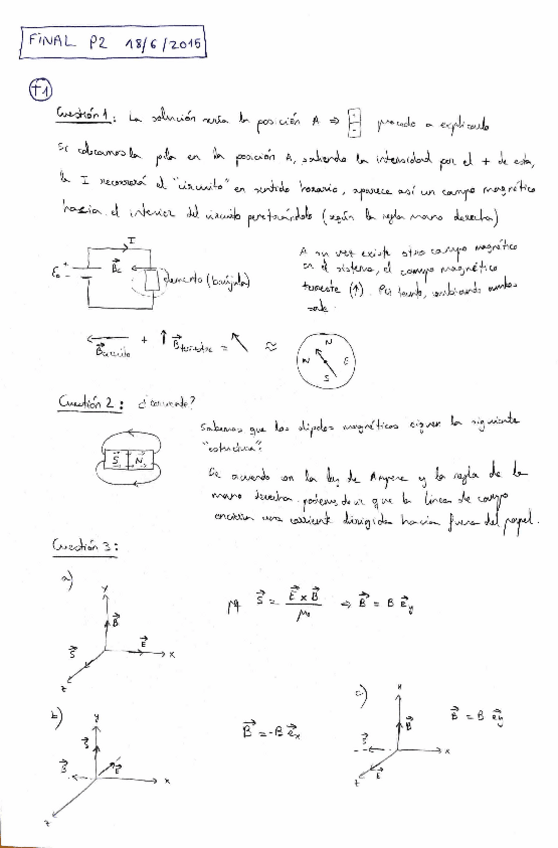 FINAL P2 18/6/2015
T1
Cuestión 1: La solución sería la posición A ⇒ procedo a explicarlo
Si colocamos la pila en la posición A, saliendo la intensidad por el + de esta,
la I recorrerá el "circuito" en sentido horario, aparece así un campo magnético
hacia el interior del circuito penetrándolo (según la regla mano derecha)
I
ε₀ + - B⃗c elemento (brújula)
A su vez existe otro campo magnético
en el sistema, el campo magnético
terrestre (↑). Por tanto, combinando ambos
sale:
B⃗circuito + ↑ B⃗terrestre = ↖ ≈ N W E S
Cuestión 2: ¿corriente?
Sabemos que los dipolos magnéticos siguen la siguiente
"estructura":
S N
De acuerdo con la ley de Ampere y la regla de la
mano derecha podemos decir que la línea de campo
encierra una corriente dirigida hacia fuera del papel.
Cuestión 3:
a) y B⃗ E⃗ S⃗ x z
pq S⃗ = E⃗ x B⃗ / μ₀ ⇒ B⃗ = B e⃗y
b) y x z
B⃗ = -B e⃗x
c) x B⃗ x z E⃗
B⃗ = B e⃗y